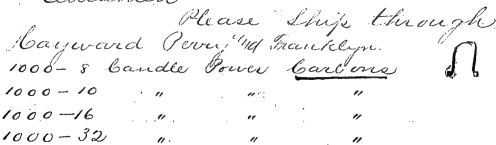 Please Ship through
Hayward Perry and Franklyn.
1000 - 8 Candle Power Carbons
1000 - 10 " " "
1000 - 16 " " "
1000 - 32 " " "